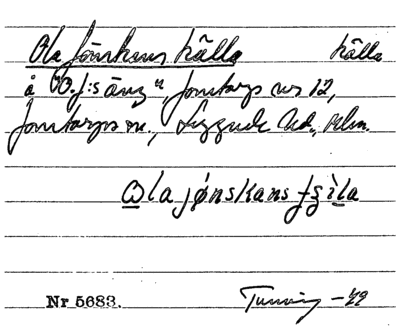 Ola Jönskans källa källa
å "O.J:s äng", Jonstorps nr 12,
Jonstorps sn., Luggude hd., Mlm.
ola jønskans
Nr 5683. Tuneving -29